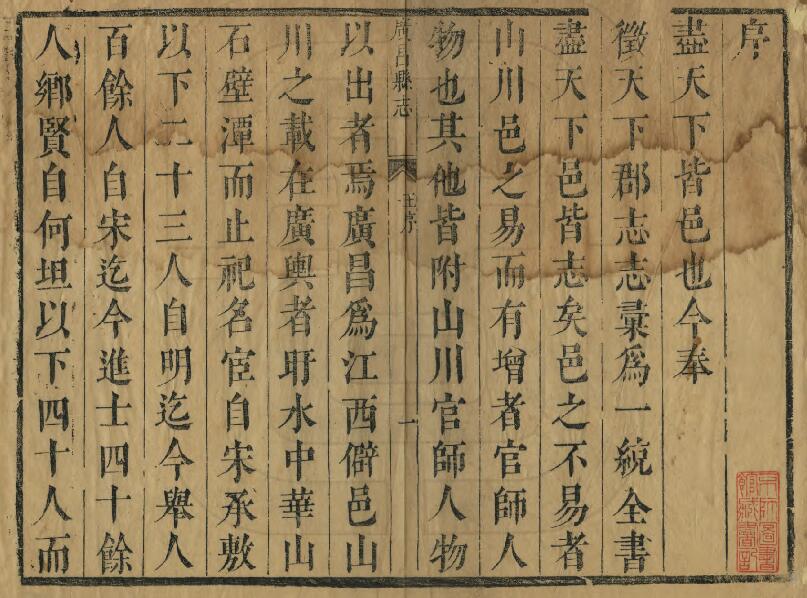 序
盡天下皆邑也今奉
徵天下郡志志彚爲一統全書
盡天下邑皆志矣邑之不易者
山川邑之易而有增者官師人
物也其他皆附山川官師人物
廣昌縣志
王序
一
以出者焉廣昌爲江西僻邑山
川之載在廣輿者盱水中華山
石壁潭而止祀名宦自宋承敷
以下二十三人自明迄今舉人
百餘人自宋迄今進士四十餘
人鄉賢自何坦以下四十人而
京師圖書
館藏書記